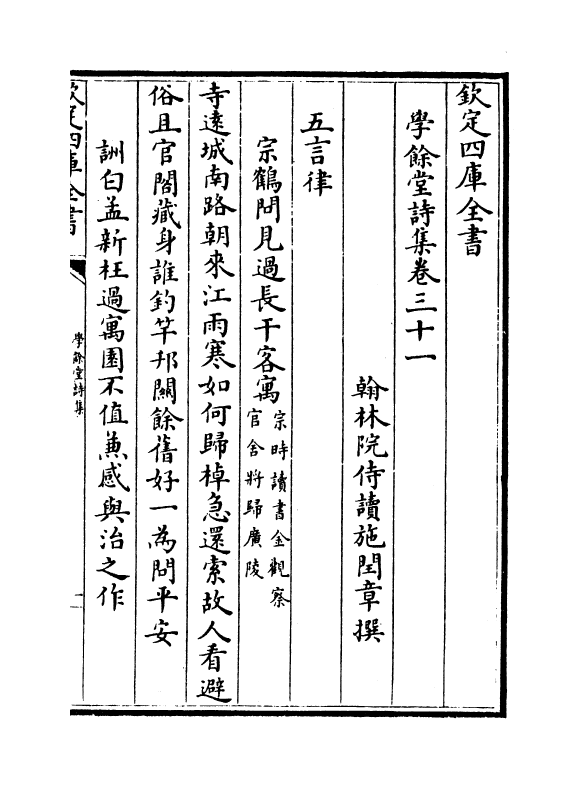 欽定四庫全書
學餘堂詩集卷三十一
翰林院侍讀施閏章撰
五言律
宗鶴問見過長干客寓宗時讀書金觀察
官舍將歸廣陵
寺遠城南路朝來江雨寒如何歸棹急還索故人看避
俗且官閣藏身誰釣竿邗關餘舊好一為問平安
詶白孟新枉過寓園不值兼感與治之作
欽定四庫全書
學餘堂詩集
一